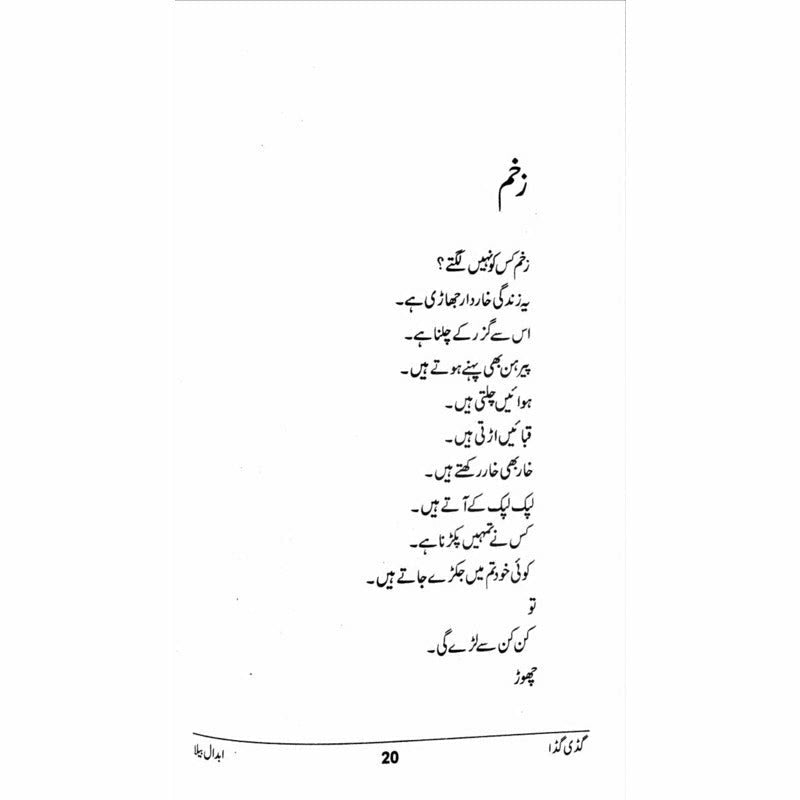 زخم
زخم کس کو نہیں لگتے ؟
یہ زندگی خاردار جھاڑی ہے۔
اس سے گزر کے چلنا ہے۔
پیرہن بھی پہنے ہوتے ہیں۔
ہوائیں چلتی ہیں۔
قبائیں اڑتی ہیں۔
خار بھی خار رکھتے ہیں۔
لپک لپک کے آتے ہیں۔
کس نے تمہیں پکڑنا ہے۔
کوئی خود تم میں جکڑے جاتے ہیں۔
تو
کن کن سے لڑے گی۔
چھوڑ
گڈی گڈا
20
ابدال بیلا